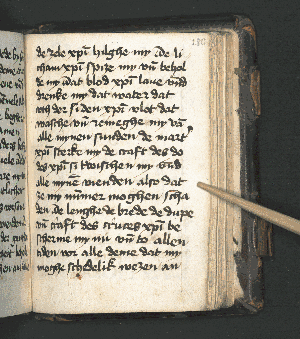 de zele xpi hilghe my De li
cham xpi spize my vn behol
de my dat blod xpi laue vnd
drenke my dat water dat
vth der siden xpi vlot dat
wasche vn reineghe my van
alle mynen sunden de mart
xpi sterke my de craft des do
des xpi si twischen my vnd
alle myne vienden also dat
ze my nummer moghen scha
den de lenghe de brede de dupe
vn craft des cruces xpi be
scherme my nu vn to allen
tiden vor alle deme dat my
moghe schedelik wezen an